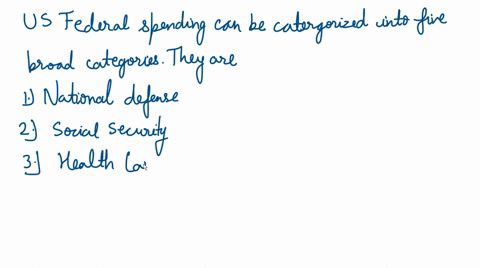 US Federal spending can be catergorized into five
broad categories. They are
1.) National defense
2.) Social Security
3.) Health Ca